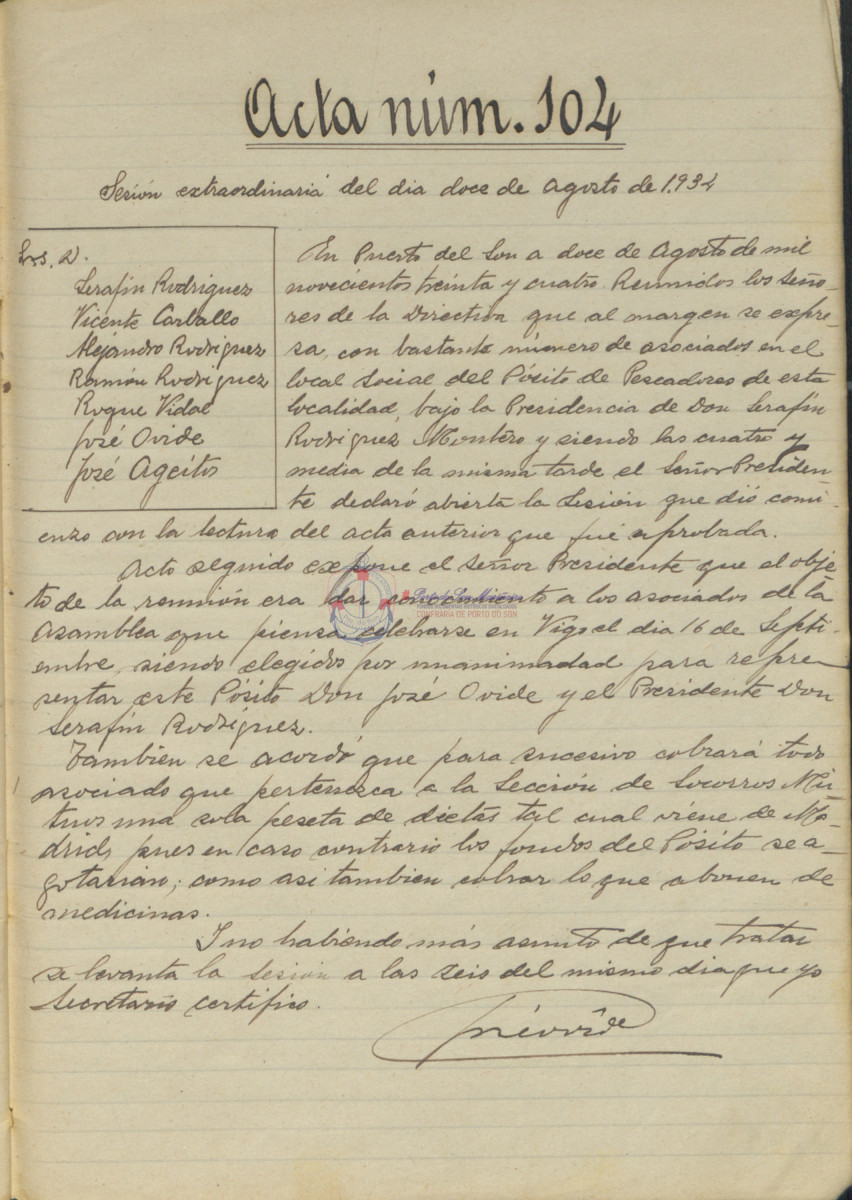 Acta núm. 104
Sesión extraordinaria del dia doce de Agosto de 1.934
Srs. D.
Serafín Rodriguez
Vicente Carballo
Alejandro Rodriguez
Ramón Rodriguez
Roque Vidal
José Ovide
José Ageitos
En Puerto del Son a doce de Agosto de mil
novecientos treinta y cuatro Reunidos los Seño-
res de la Directiva que al margen se expre-
sa, con bastante número de asociados en el
local social del Pósito de Pescadores de esta
localidad, bajo la Presidencia de Don Serafín
Rodriguez Montero y siendo las cuatro y
media de la misma tarde el Señor Presiden-
te declaró abierta la Sesión que dió comi-
enzo con la lectura del acta anterior que fué aprobada.
Acto seguido expone el Señor Presidente que el obje-
to de la reunión era dar conocimiento a los asociados de la
Asamblea que piensa celebrarse en Vigo el dia 16 de Septi-
embre, siendo elegidos por unanimadad para repre-
sentar este Pósito Don José Ovide y el Presidente Don
Serafín Rodriguez.
Tambien se acordó que para sucesivo cobrará todo
asociado que pertenezca a la Sección de Socorros Mú-
tuos una sola peseta de dietas tal cual viene de Ma-
drid, pues en caso contrario los fondos del Pósito se a-
gotarian; como asi tambien cobrar lo que abonen de
medicinas.
I no habiendo más asunto de que tratar
se levanta la sesión a las seis del mismo dia que yo
Secretario certifico.
José Ovide
CONFRARÍA DE PORTO DO SON